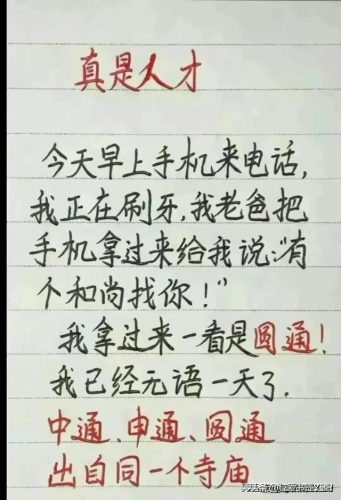 真是人才
今天早上手机来电话,
我正在刷牙,我老爸把
手机拿过来给我说:"有
个和尚找你!"
我拿过来一看是圆通!
我已经无语一天了.
中通、申通、圆通
出自同一个寺庙